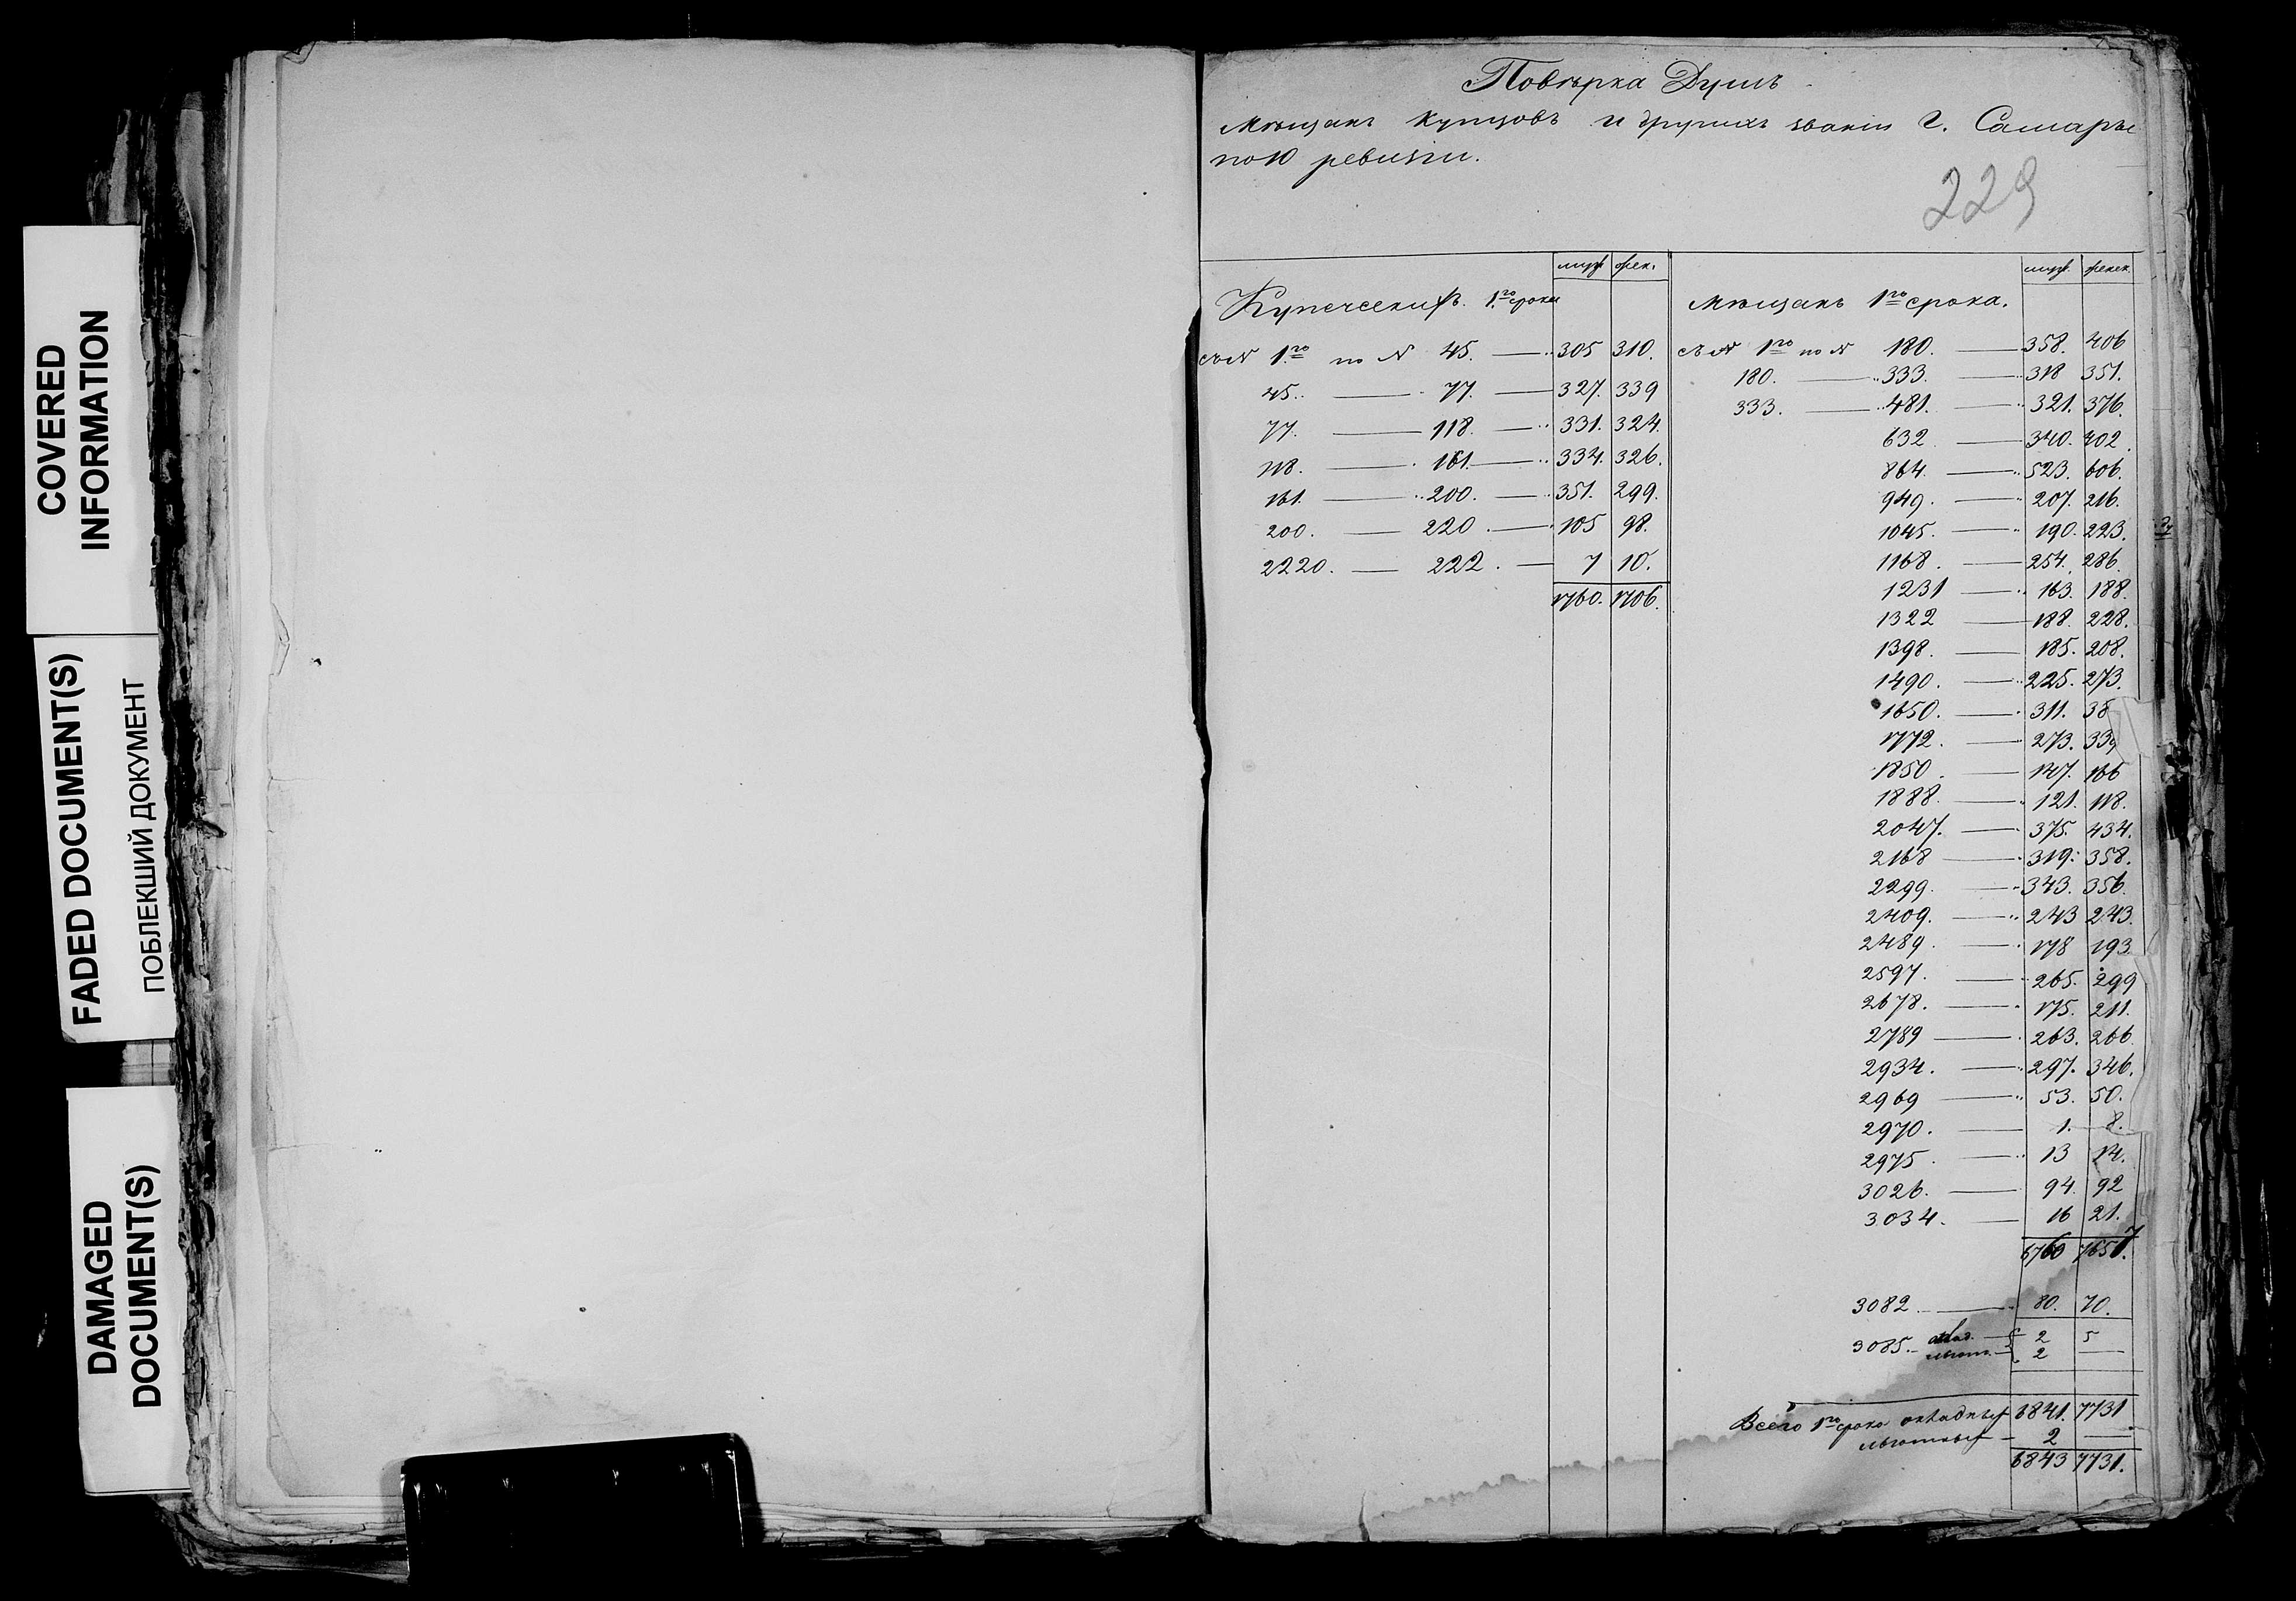 COVERED
INFORMATION
FADED DOCUMENT(S)
ПОБЛЕКШИЙ ДОКУМЕНТ
DAMAGED
DOCUMENT(S)
Повѣрка Душъ
Мѣщанъ Купцовъ и другихъ званій г. Самары
по 10 ревизіи.
229
муж жен.
Купеческихъ. 1го срока
съ N 1го по N 45. 305 310.
45. 77. 327. 339
77. 118. 331. 324.
118. 161. 334. 326.
161. 200. 351. 299.
200. 220. 105 98.
2220. 222. 7 10.
1760. 1706.
муж. женск.
Мѣщанъ 1го срока.
съ N 1го по N 180. 358. 406
180. 333. 318 351.
333. 481. 321. 376.
632. 340. 402.
864. 523. 606.
949. 207. 216.
1045. 190. 223.
1168. 254. 286.
1231 163. 188.
1322 188. 228.
1398. 185. 208.
1490. 225. 273.
1650. 311. 38
1772. 273. 339
1850. 147. 166
1888. 121. 118.
2047. 375. 434.
2168 319. 358.
2299. 343. 356.
2409. 243 243.
2489. 178 193
2597. 265. 299
2678. 175. 211.
2789 263. 266.
2934. 297. 346.
2969 53. 50.
2970. 1. 8.
2975. 13 14.
3026. 94. 92
3034. 16 21.
6760 7651.
7
3082 80. 70.
3085. 2 5
льготн. 2 —
Всего 1го срока окладныхъ 6841. 7731
льготныхъ 2 —
6843 7731.